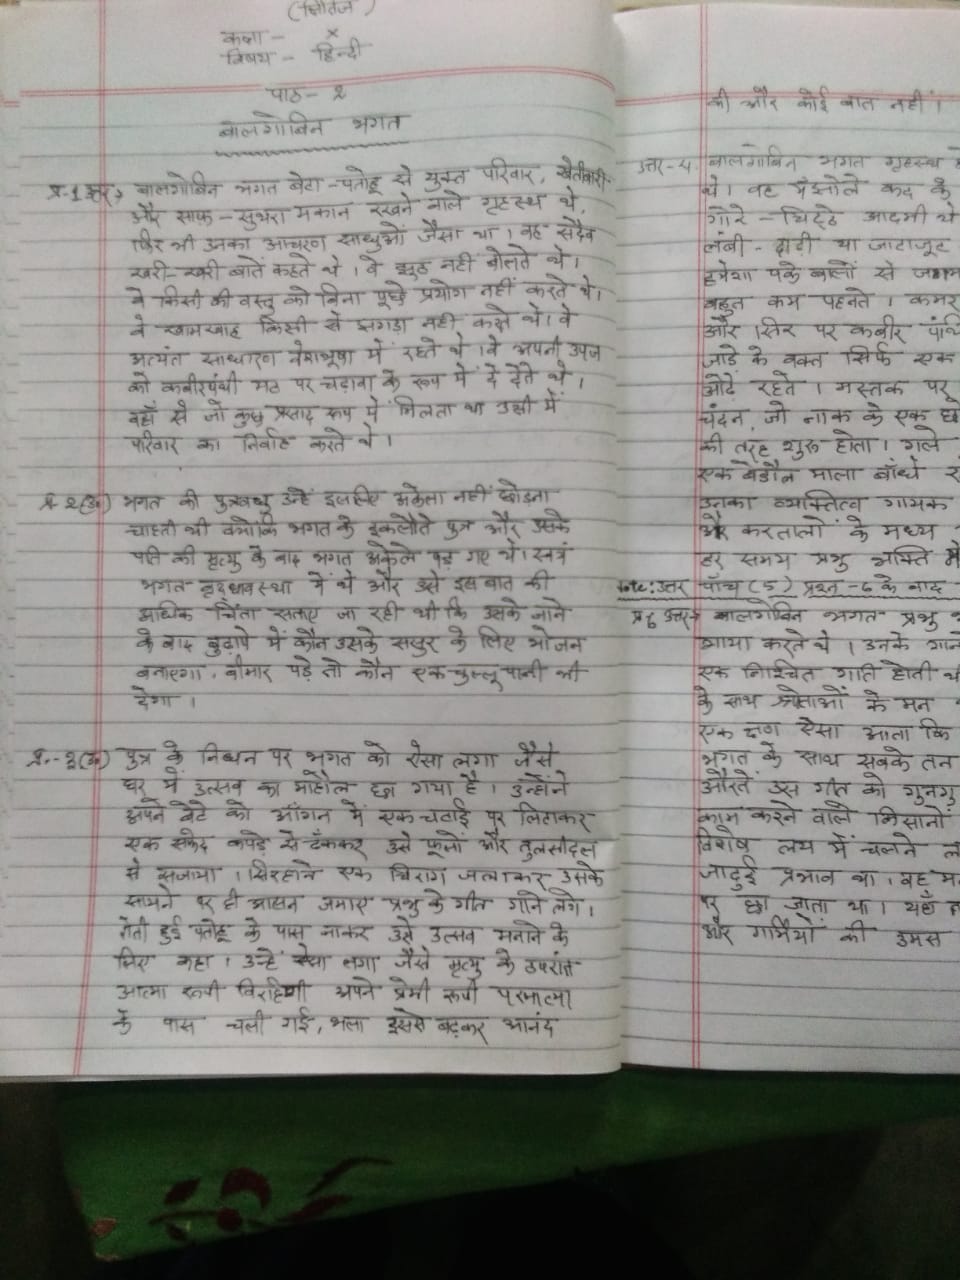 (क्षितिज)
कक्षा - X
विषय - हिन्दी
पाठ - 2
बालगोबिन भगत
प्र-1 उत्तर बालगोबिन भगत बेटा-पतोहू से युक्त परिवार, खेतीबारी
और साफ-सुथरा मकान रखने वाले गृहस्थ थे,
फिर भी उनका आचरण साधुओं जैसा था। वह सदैव
खरी-खरी बातें कहते थे। वे झूठ नहीं बोलते थे।
वे किसी की वस्तु को बिना पूछे प्रयोग नहीं करते थे।
वे खामखाह किसी से झगड़ा नहीं करते थे। वे
अत्यंत साधारण वेशभूषा में रहते थे। वे अपनी उपज
को कबीरपंथी मठ पर चढ़ावा के रूप में दे देते थे।
वहाँ से जो कुछ प्रसाद रूप में मिलता था उसी में
परिवार का निर्वाह करते थे।
प्र-2(उ) भगत की पुत्रवधू उन्हें इसलिए अकेला नहीं छोड़ना
चाहती थी क्योंकि भगत के इकलौते पुत्र और उसके
पति की मृत्यु के बाद भगत अकेले पड़ गए थे। स्वयं
भगत वृद्धावस्था में थे और उसे इस बात की
अधिक चिंता सताए जा रही थी कि उसके जाने
के बाद बुढ़ापे में कौन उसके ससुर के लिए भोजन
बनाएगा, बीमार पड़े तो कौन एक चुल्लू पानी भी
देगा।
प्र.-3(उ) पुत्र के निधन पर भगत को ऐसा लगा जैसे
घर में उत्सव का माहौल छा गया है। उन्होंने
अपने बेटे को आँगन में एक चटाई पर लिटाकर
एक सफेद कपड़े से ढँककर उसे फूलों और तुलसीदल
से सजाया। सिरहाने एक चिराग जलाकर उसके
सामने पर ही आसन जमाए प्रभु के गीत गाने लगे।
रोती हुई पतोहू के पास जाकर उसे उत्सव मनाने के
लिए कहा। उन्हें ऐसा लगा जैसे मृत्यु के उपरांत
आत्मा रूपी विरहिणी अपने प्रेमी रूपी परमात्मा
के पास चली गई, भला इससे बढ़कर आनंद
की और कोई बात नहीं।
उत्तर-4. बालगोबिन भगत गृहस्थ
थे। वह मँझोले कद के
गोरे-चिट्टे आदमी थे
लंबी-दाढ़ी या जटाजूट
हमेशा पके बालों से
बहुत कम पहनते। कमर
और सिर पर कबीर
जाड़े के वक्त सिर्फ एक
ओढ़े रहते। मस्तक पर
चंदन, जो नाक के एक
की तरह शुरू होता। गले
एक बेडौल माला बाँधे
उनका व्यक्तित्व गायक
और करतालों के मध्य
हर समय प्रभु भक्ति में
Note: उत्तर पाँच (5) प्रश्न-6 के बाद
प्र6 उत्तर बालगोबिन भगत प्रभु
गाया करते थे। उनके गाने
एक निश्चित गति होती
के साथ श्रोताओं के मन
एक क्षण ऐसा आता कि
भगत के साथ सबके तन
औरतें उस गीत को
काम करने वाले किसानों
विशेष लय में चलने
जादुई प्रभाव था। वह
पर छा जाता था। यहाँ
और गर्मियों की उमस